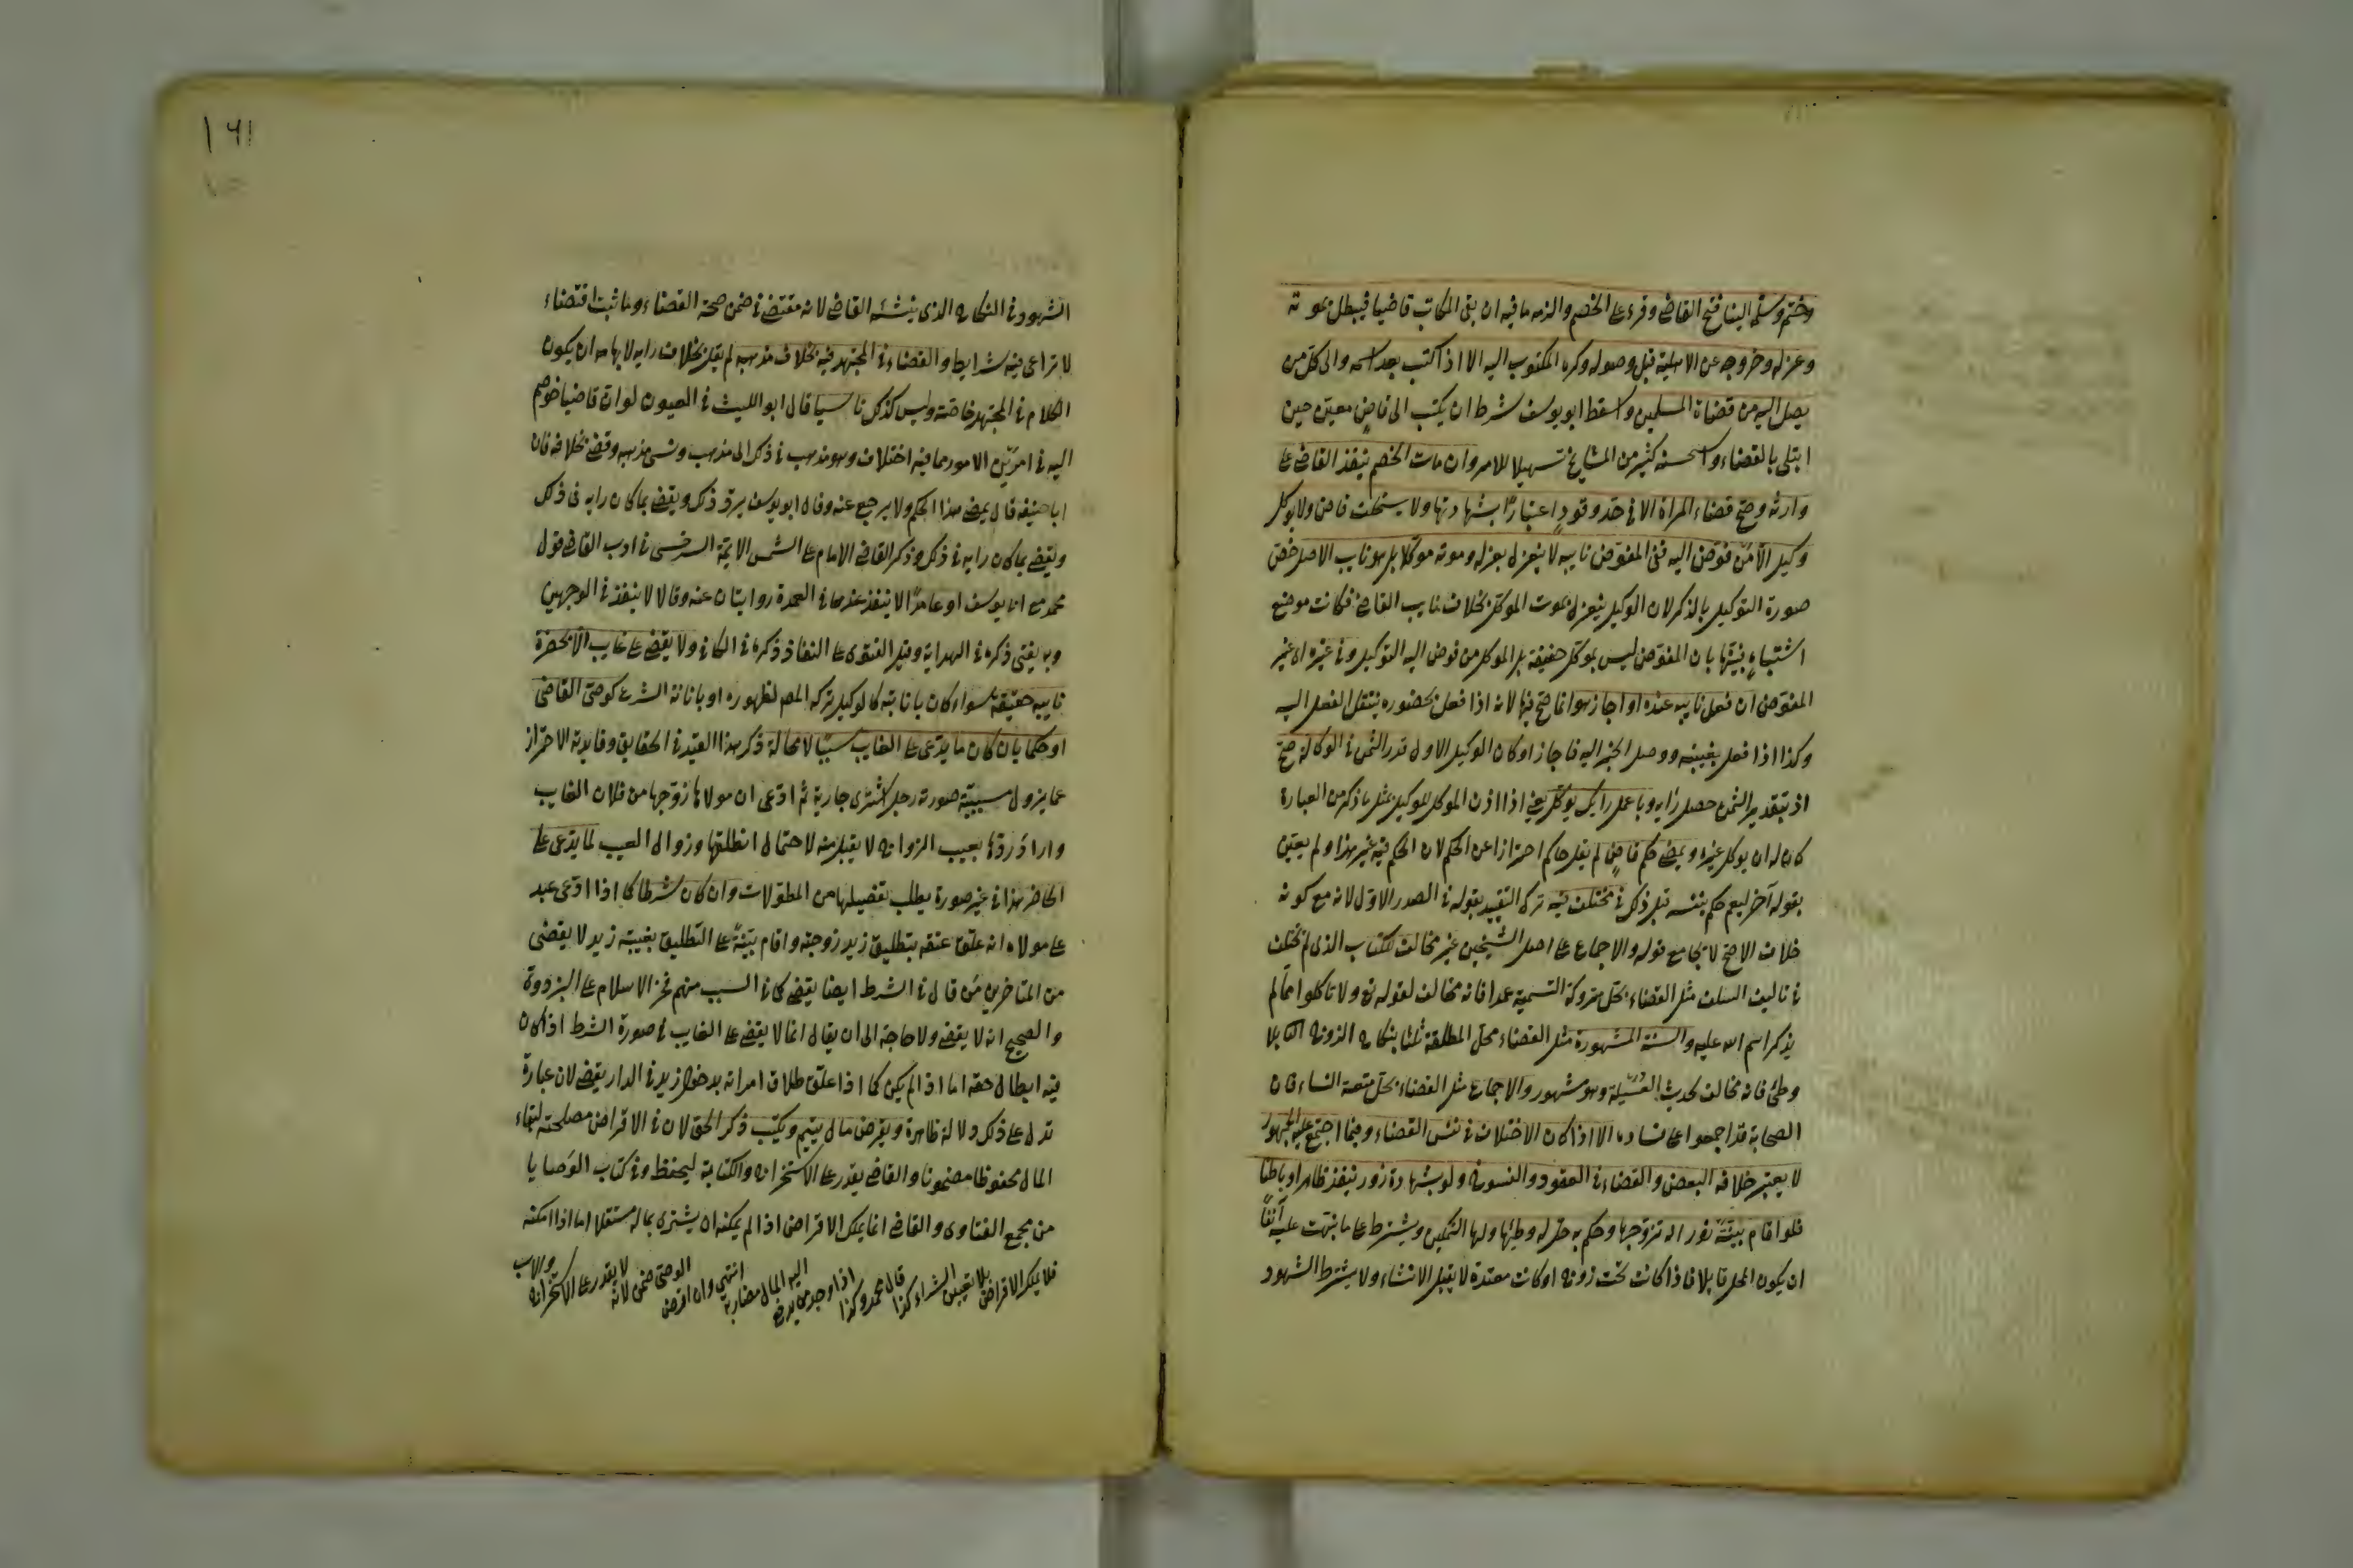 وختم وسلم الينا فتح القاضى وقرء على الخصم والزمه ما فيه ان بقى الكاتب قاضيا فيبطل بموته
وعزله وخروجه عن الاهلية قبل وصوله وكره المكتوب اليه الا اذا كتب بعد اسمه والى كل من
يصل اليه من قضاة المسلمين واسقط ابو يوسف شرط ان يكتب الى قاضٍ معين حين
ابتلى بالقضاء واستحسنه كثير من المشايخ تسهيلا للامر وان مات الخصم ينفذ القاضى على
وارثه وصح قضاء المراة الا فى حد وقودٍ اعتبارًا بشهادتها ولا يستخلف قاض ولا يوكل
وكيل الا من فوض اليه ففى المفوض نايبه لا ينعزل بعزله وموته موكلا بل هو نايب الاصل خص
صورة التوكيل بالذكر لان الوكيل ينعزل بموت الموكل بخلاف نايب القاضى فكانت موضع
اشتباهٍ بينها بان المفوض ليس بموكل حقيقة بل الموكل من فوض اليه التوكيل وفى غيره اى غير
المفوض ان فعل نايبه عنده او اجاز هو انما صح فيها لانه اذا فعل بحضوره ينتقل الفعل اليه
وكذا اذا فعل بغيبته ووصل الخبر اليه فاجاز او كان الوكيل الاول قدر الثمن فى الوكالة صح
اذ بتقدير الثمن حصل رايه وباعمل رايك يوكل يعنى اذا اذن الموكل للوكيل بمثل ما ذكر من العبارة
كان له ان يوكل غيره ويمضى حكم قاضٍ لم يقل حاكم احترازا عن الحكم لان الحكم فيه غير هذا ولم يعين
بقوله آخر ليعم حكم نفسه قبل ذلك فى مختلف فيه ترك التقييد بقوله فى الصدر الاول لانه مع كونه
خلاف الاصح لا يجامع قوله والاجماع على اصل الشيخين غير مخالف للكتاب الذى لم يختلف
فى تاليف السلف مثل القضاء بحل متروك التسمية عمدا فانه مخالف لقوله تع ولا تاكلوا مما لم
يذكر اسم الله عليه والسنة المشهورة مثل القضاء بحل المطلقة ثلثا بنكاح الزوج الثانى بلا
وطئ فانه مخالف لحديث العسيلة وهو مشهور والاجماع مثل القضاء بحل متعة النساء فان
الصحابة قد اجمعوا على فساده الا اذا كان الاختلاف فى نفس القضاء وفيما اجتمع عليه الجمهور
لا يعتبر خلافه البعض والقضاء فى العقود والفسوخ ولو بشهادة زور ينفذ ظاهرا وباطنا
فلو اقام بينة زور انه تزوجها وحكم به حل له وطئها ولها التمكين ويشترط على ما نبهت عليه آنفًا
ان يكون المحل قابلا فاذا كانت تحت زوج او كانت معتدة لا يقبل الانشاء ولا يشترط الشهود
١٦١
الشهود فى النكاح الذى ينشئه القاضى لانه مقتضى فى ضمن صحة القضاء وما ثبت اقتضاء
لا تراعى فيه شرايط والقضاء فى المجتهد فيه بخلاف مذهبه لم يقل بخلاف رايه لايهامه ان يكون
الكلام فى المجتهد خاصة وليس كذلك ناسيا قال ابو الليث فى العيون لو ان قاضيا خوصم
اليه فى امر من الامور مما فيه اختلاف وهو مذهب فى ذلك الى مذهب ونسى مذهبه وقضى بخلافه فان
ابا حنيفة قال يمضى هذا الحكم ولا يرجع عنه وقال ابو يوسف يرد ذلك ويقضى بما كان رايه فى ذلك
ويقضى بما كان رايه فى ذلك وذكر القاضى الامام على الشمس الايمة السرخسى فى ادب القاضى قول
محمد مع ابى يوسف او عامدًا لا ينفذ عندهما فى العمدة روايتان عنه وقالا لا ينفذ فى الوجهين
وبه يفتى ذكره فى الهداية وقيل الفتوى على النفاذ ذكره فى الكافى ولا يقضى على غايب الا بحضرة
نايبه حقيقة سواء كان بانابته كالوكيل تركه المص لظهوره او بانابة الشرع كوصى القاضى
او حكما بان كان ما يدعى على الغايب سببًا لا محالة ذكر هذا القيد فى الحقايق وفايدته الاحتراز
عما يزول سببيته صورته رجل اشترى جارية ثم ادعى ان مولاها زوجها من فلان الغايب
واراد ردها بعيب الزواج لا يقبل منه لاحتمال انه طلقها وزوال العيب لما يدعى على
الحاضر هذا فى غير صورة يطلب تفصيلها من المطولات وان كان شرطا كما اذا ادعى عبد
على مولاه انه علق عتقه بتطليق زيد زوجته واقام بينةً على التطليق بغيبة زيد لا يقضى
من المتاخرين من قال فى الشرط ايضا يقضى كما فى السبب منهم فخر الاسلام على البزدوى
والصحيح انه لا يقضى ولا حاجة الى ان يقال انما لا يقضى على الغايب فى صورة الشرط اذا كان
فيه ابطال حقه اما اذا لم يكن كما اذا علق طلاق امراته بدخول زيد فى الدار يقضى لان عبارة
تدل على ذلك دلالة ظاهرة ويقرض مال يتيم ويكتب ذكر الحق لان فى الاقراض مصلحته لبقاء
المال محفوظا مضمونا والقاضى يقدر على الاستخراج والكتابة ليحفظ وفى كتاب الوصايا
من مجمع الفتاوى والقاضى انما يملك الاقراض اذا لم يمكنه ان يشترى بماله مستغلا اما اذا امكنه
فلا يملك الاقراض بلا تعيين الشراء كذا قال محمد وكذا اذا وجد من يدفع اليه المال مضاربة انتهى وان اقرض الوصى ضمن لانه لا يقدر على الاستخراج والاب